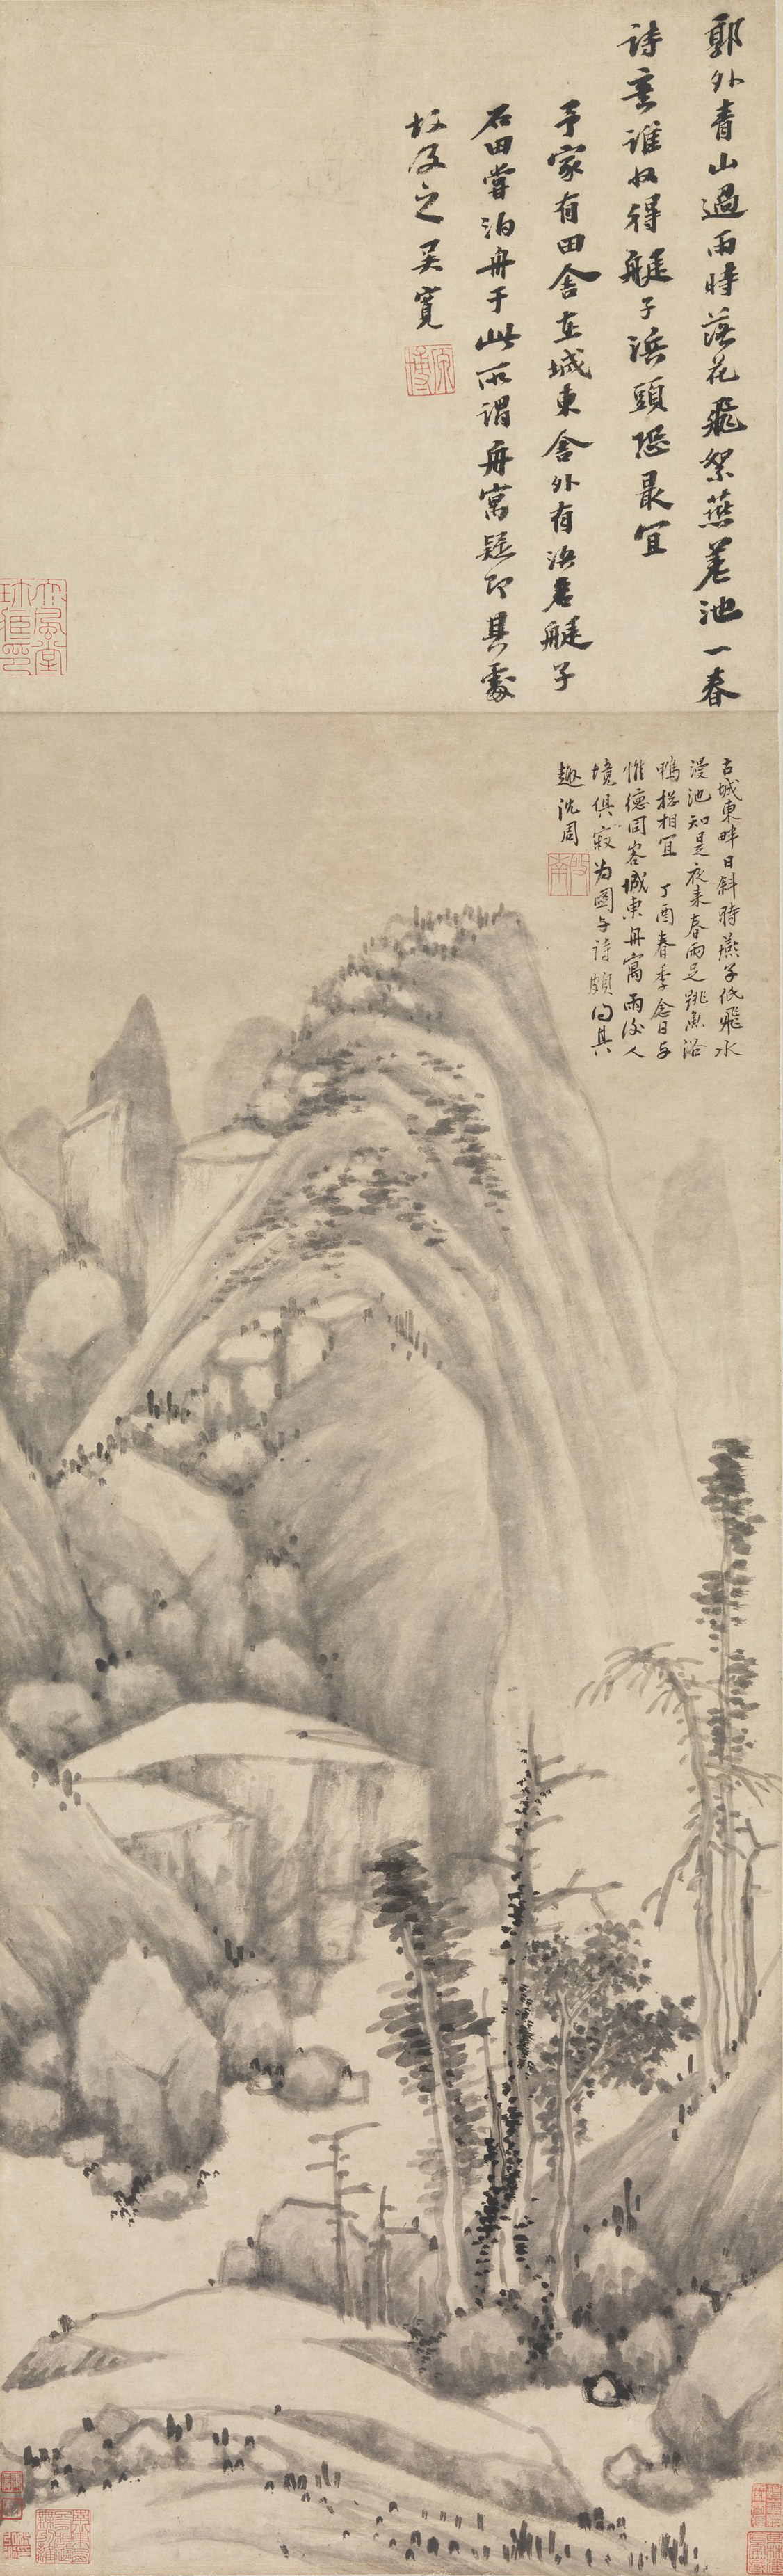 郭外青山過雨時落花飛絮燕差池一春
詩意誰收得艇子浜頭恐最宜
予家有田舍在城東舍外有浜名艇子
石田嘗泊舟于此所謂舟寓疑即其處
故及之吳寬
原博
大風堂珍藏印
古城東畔日斜時燕子低飛水
漫池知是夜來春雨足跳魚浴
鴨總相宜 丁酉春季念日与
惟德同客城東舟寓雨後人
境俱寂为圖与詩頗得其
趣沈周
啟南